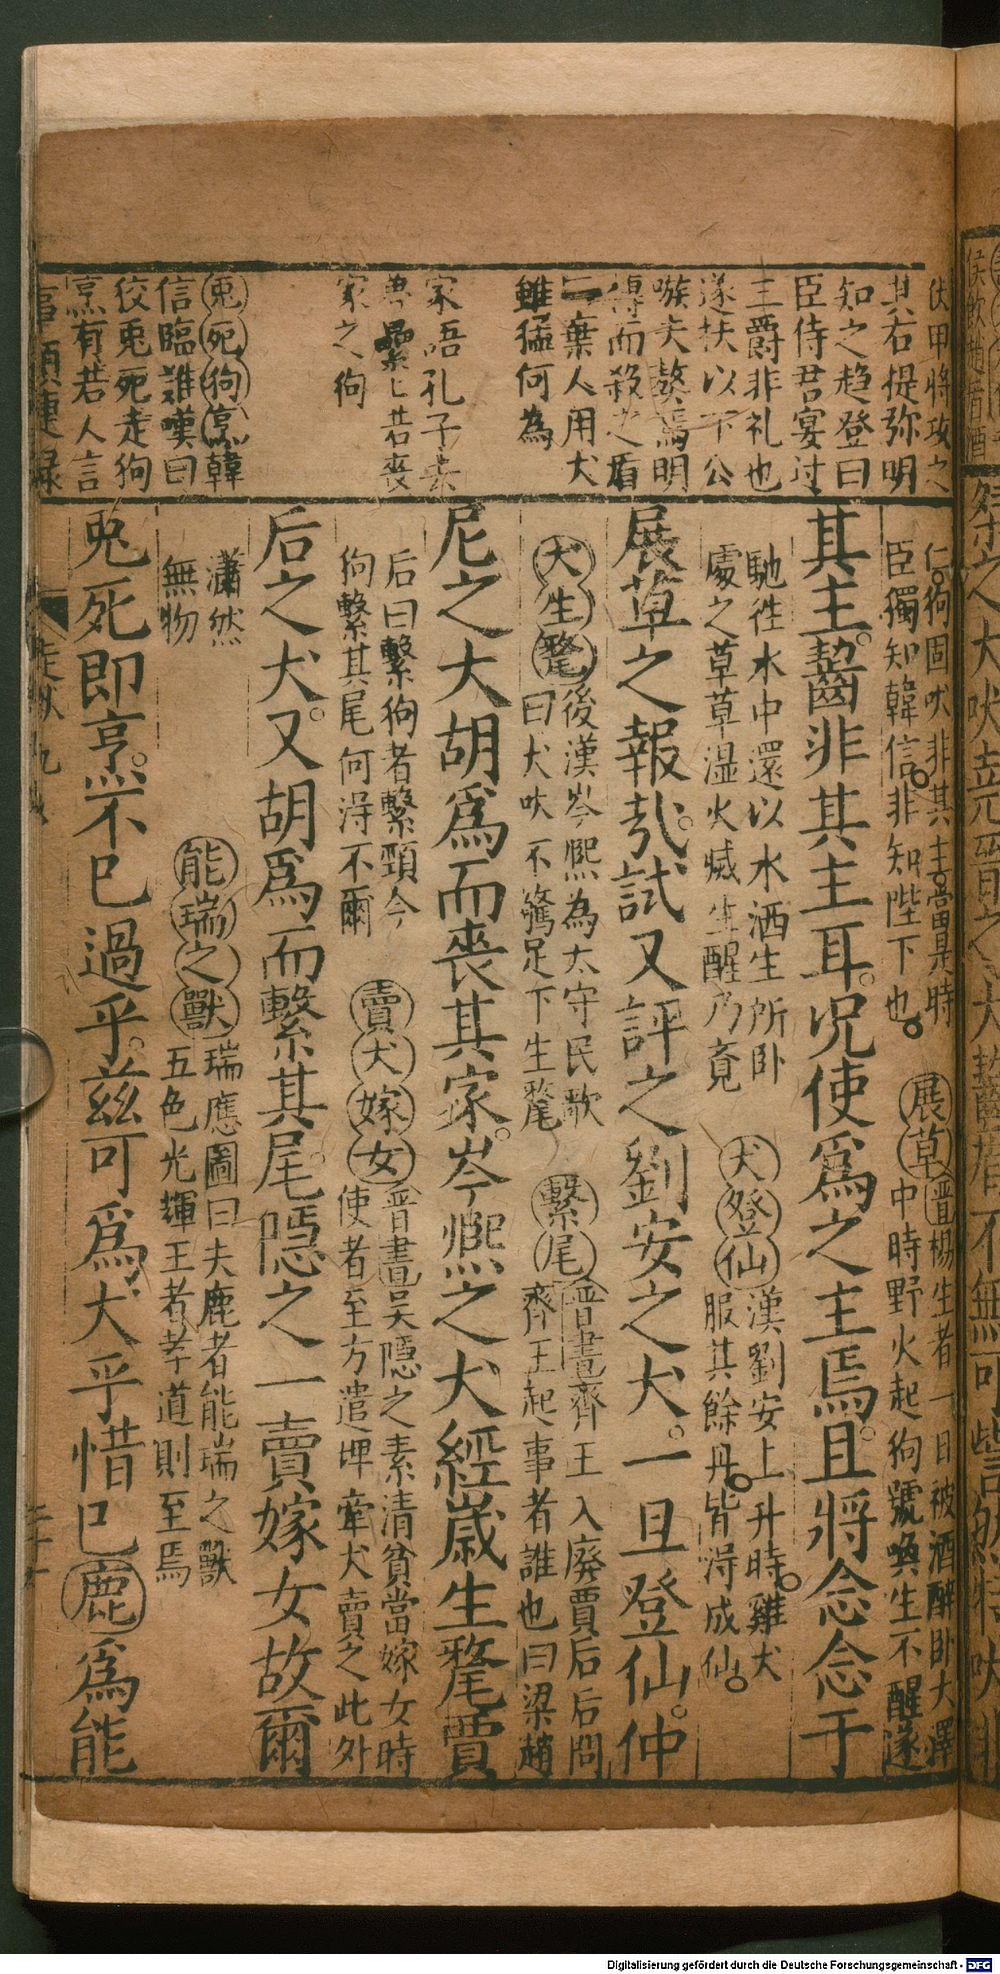 伏甲將攻之
其右提弥明
知之趋登曰
臣侍君宴过
三爵非礼也
遂扶以下公
嗾夫獒焉明
搏而殺之盾
曰棄人用犬
雖猛何為
家語孔子去
魯纍乚若喪
家之狗
兎死狗烹韓
信臨誰嘆曰
佼兎死走狗
烹有若人言
事類連錄
仁狗固吠非其主當是時
臣獨知韓信非知陛下也
展草晋楊生者一日被酒醉卧大澤
中時野火起狗號喚生不醒遂
其主齧非其主耳况使爲之主焉且將念念于
馳徃水中還以水洒生所卧
處之草草湿火㓕生醒乃竟
犬登仙漢劉安上升時雞犬
服其餘丹皆淂成仙
展草之報㢤試又評之劉安之犬一旦登仙仲
犬生氂後漢岑熙為太守民歌
曰犬吠不驚足下生氂
繫尾晋書齊王入廢賈后后問
齊王起事者誰也曰梁趙
尼之犬胡爲而喪其家岑熙之犬經歲生氂賈
后曰繫狗者繫頸今
狗繫其尾何淂不爾
賣犬嫁女晋書吴隱之素清貧當嫁女時
使者至方遣婢牽犬賣之此外
后之犬又胡爲而繫其尾隱之一賣嫁女故爾
瀟然
無物
能瑞之獸瑞應圖曰夫鹿者能瑞之獸
五色光輝王者孝道則至焉
兎死即烹不已過乎兹可爲犬乎惜已鹿爲能
走獸 九
Digitalisierung gefördert durch die Deutsche Forschungsgemeinschaft - DFG